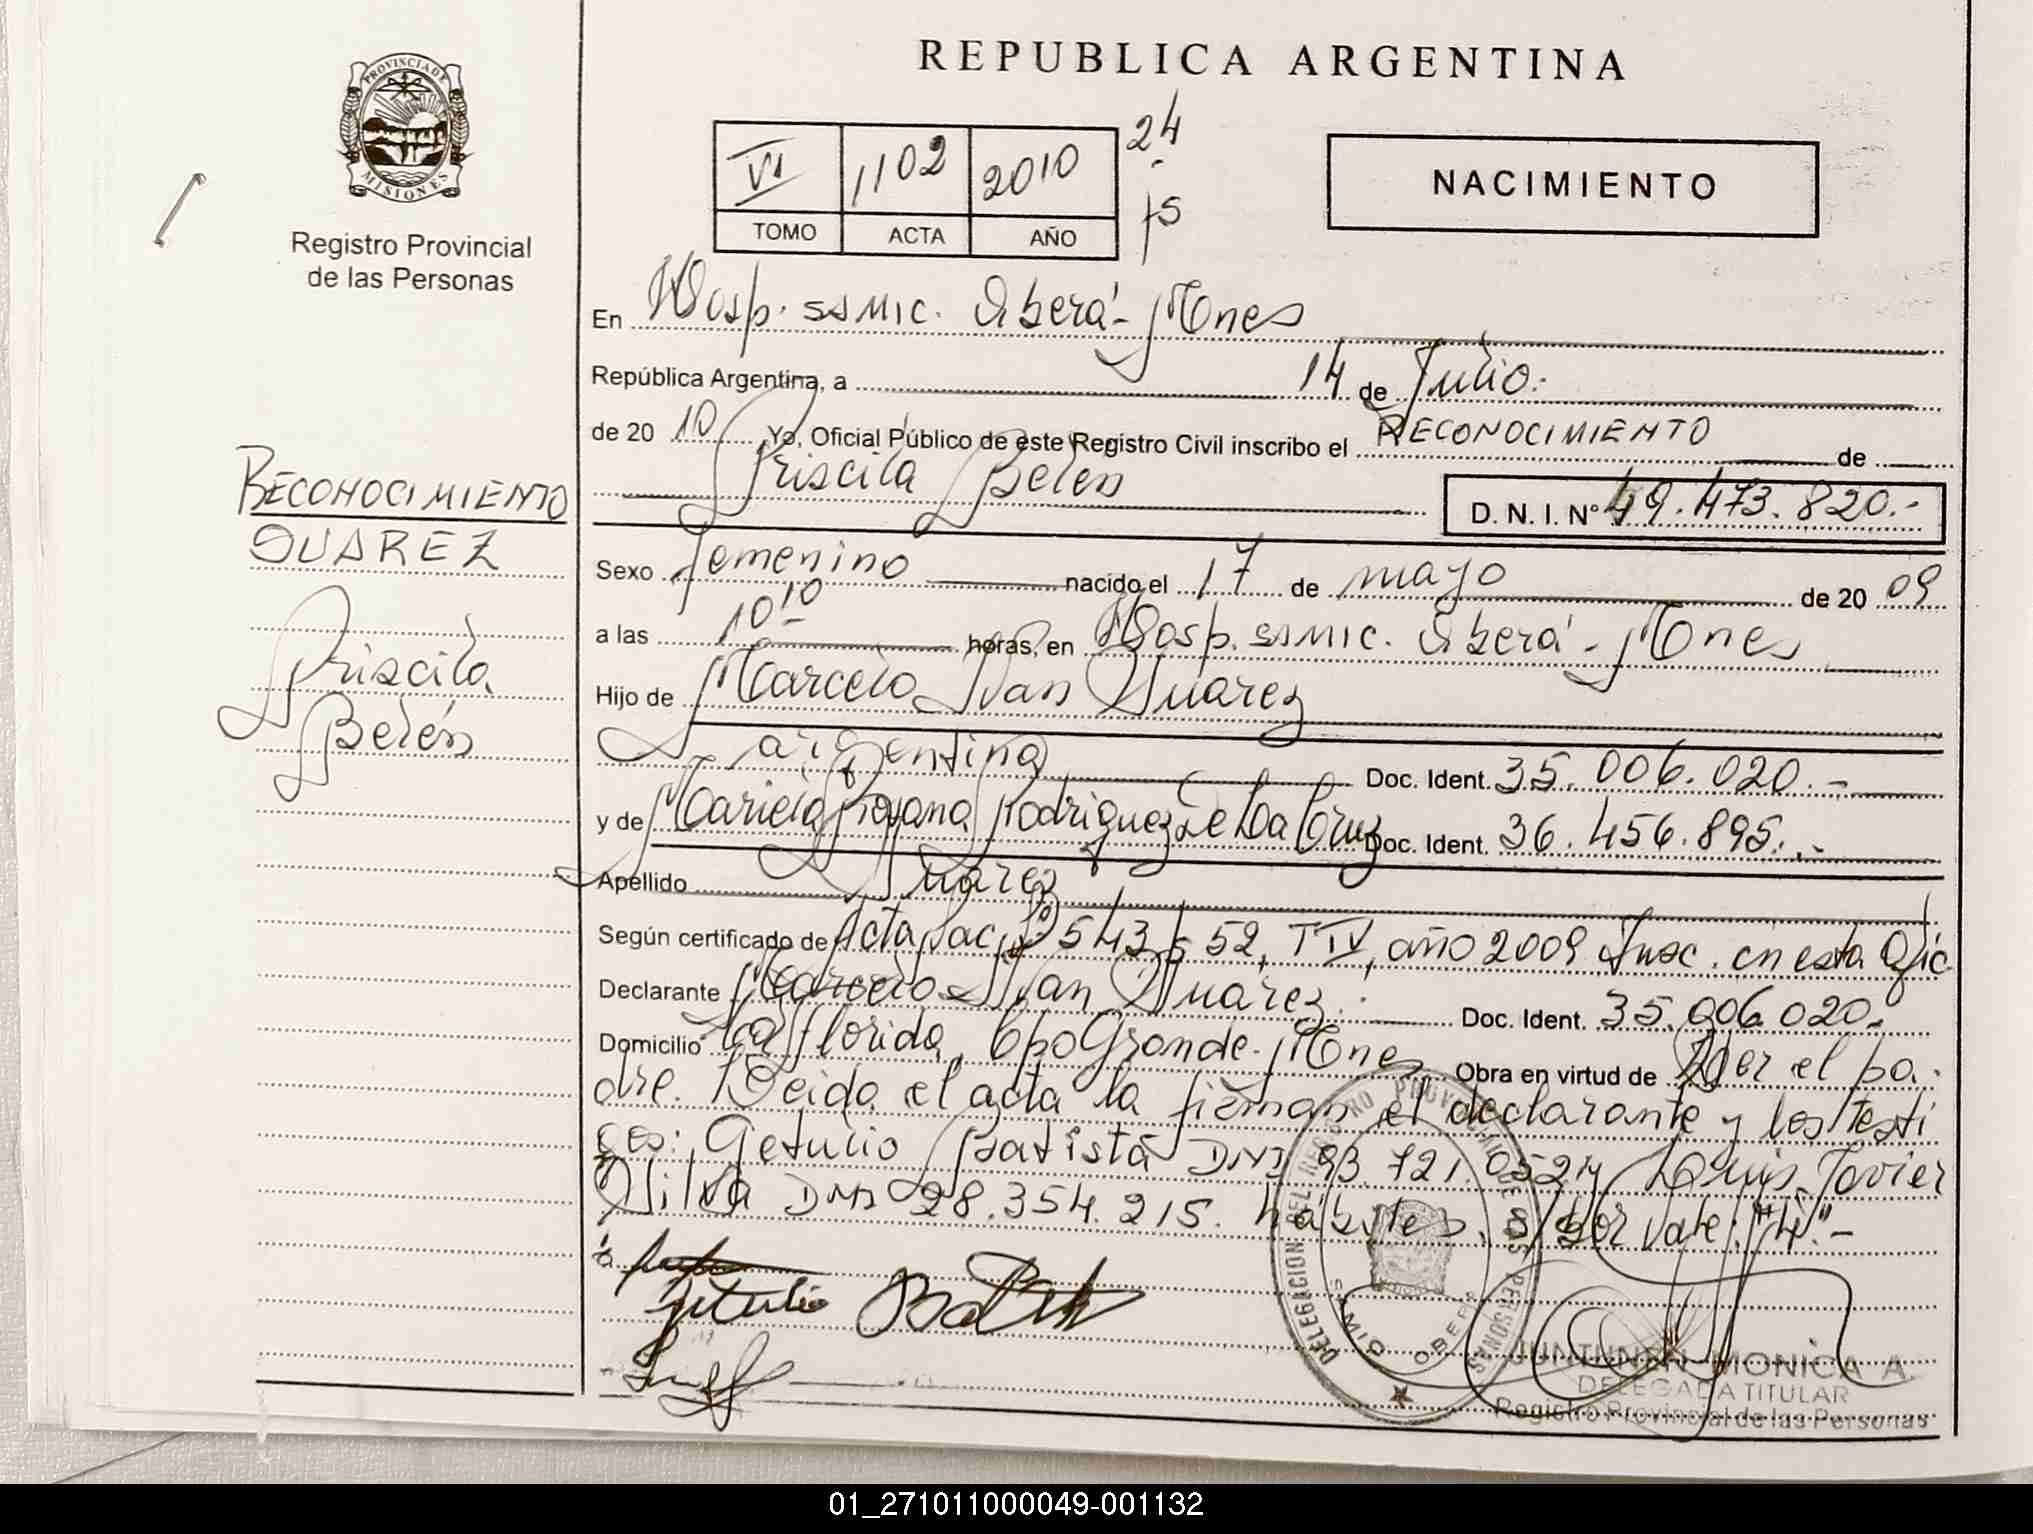 REPUBLICA ARGENTINA
PROVINCIA DE
MISIONES
Registro Provincial
de las Personas
VI 1102 2010 24
TOMO ACTA AÑO 15
NACIMIENTO
En Hosp. SSMIC. Oberá - Mnes
República Argentina, a 14 de Julio.-
de 20 10 Yo, Oficial Público de este Registro Civil inscribo el RECONOCIMIENTO de
Priscila Belén D. N. I. Nº 49.473.820.-
RECONOCIMIENTO
SUAREZ
Priscila
Belén
Sexo femenino nacido el 17 de mayo de 20 09
a las 10 10 horas, en Hosp. SSMIC. Oberá - Mnes
Hijo de Marcelo Ivan Suarez
argentina Doc. Ident. 35.006.020.-
y de Mariela Rosana Rodriguez De La Cruz Doc. Ident. 36.456.895.-
Apellido Suarez
Según certificado de Acta Nac. 543, 52, T IV, año 2009 Insc. en esta Ofic
Declarante Marcelo Ivan Suarez. Doc. Ident. 35.006.020.-
Domicilio La Florida, Cpo Grande - Mnes Obra en virtud de Ser el pa-
dre. Leida el acta la firman el declarante y los testi
gos: Getulio Batista DNI 93.721.052 y Luis Javier
Silva DNI 28.354.215. hábiles. S/bor vale: "4".-
Getulio Batista
DELEGACION DEL REGISTRO PROVINCIAL DE LAS PERSONAS
OBERA
JUNTUNEN MONICA A.
DELEGADA TITULAR
Registro Provincial de las Personas
01_271011000049-001132